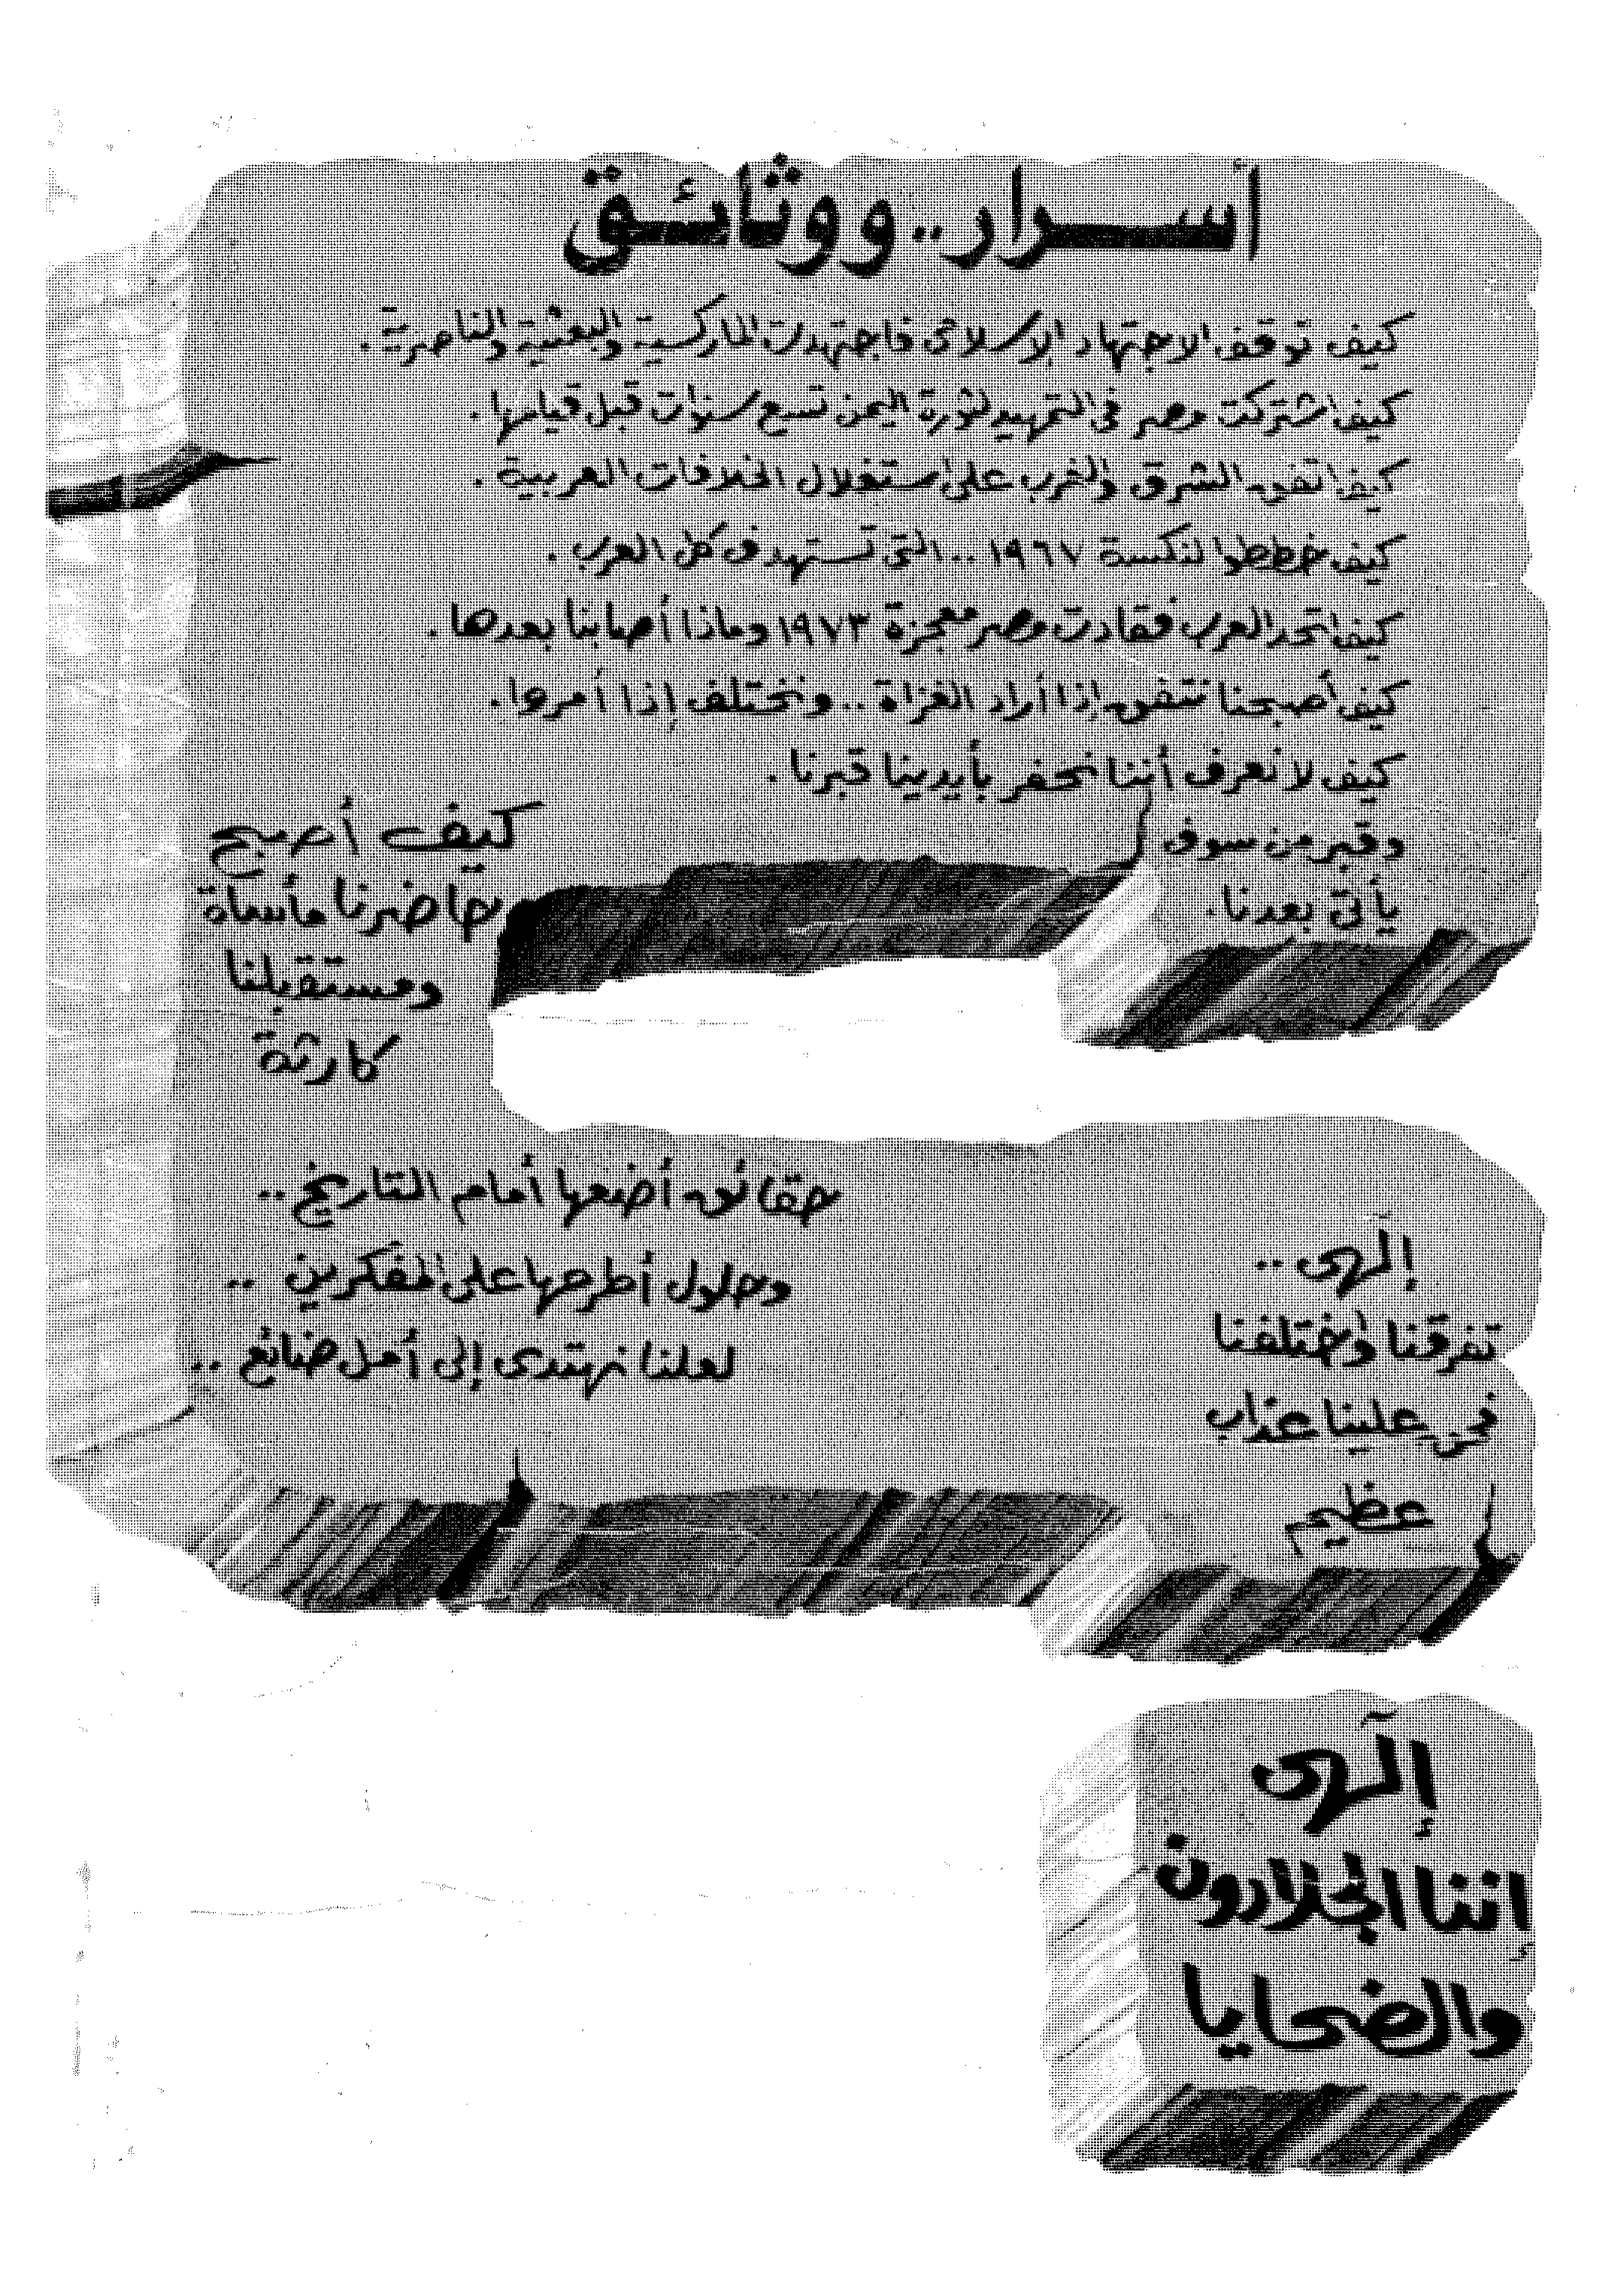 أسرار .. ووثائق
كيف توقف الاجتهاد الإسلامى فاجتهدت الماركسية والبعثية والناصرية .
كيف اشتركت مصر فى التمهيد لثورة اليمن تسع سنوات قبل قيامها .
كيف اتفق الشرق والغرب على استغلال الخلافات العربية .
كيف خططوا لنكسة ١٩٦٧ .. التى تستهدف كل العرب .
كيف اتحد العرب فقادت مصر معجزة ١٩٧٣ وماذا أصابنا بعدها .
كيف أصبحنا نتفق إذا أراد الغزاة .. ونختلف إذا أمروا .
كيف لا نعرف أننا نحفر بأيدينا قبرنا .
وقبر من سوف
يأتى بعدنا .
كيف أصبح
حاضرنا مأساة
ومستقبلنا
كارثة
حقائق أضعها أمام التاريخ ..
وحلول أطرحها على المفكرين ..
لعلنا نهتدى إلى أمل ضائع ..
إلهى ..
تفرقنا واختلفنا
فحق علينا عذاب
عظيم
إلهى
إننا الجلادون
والضحايا